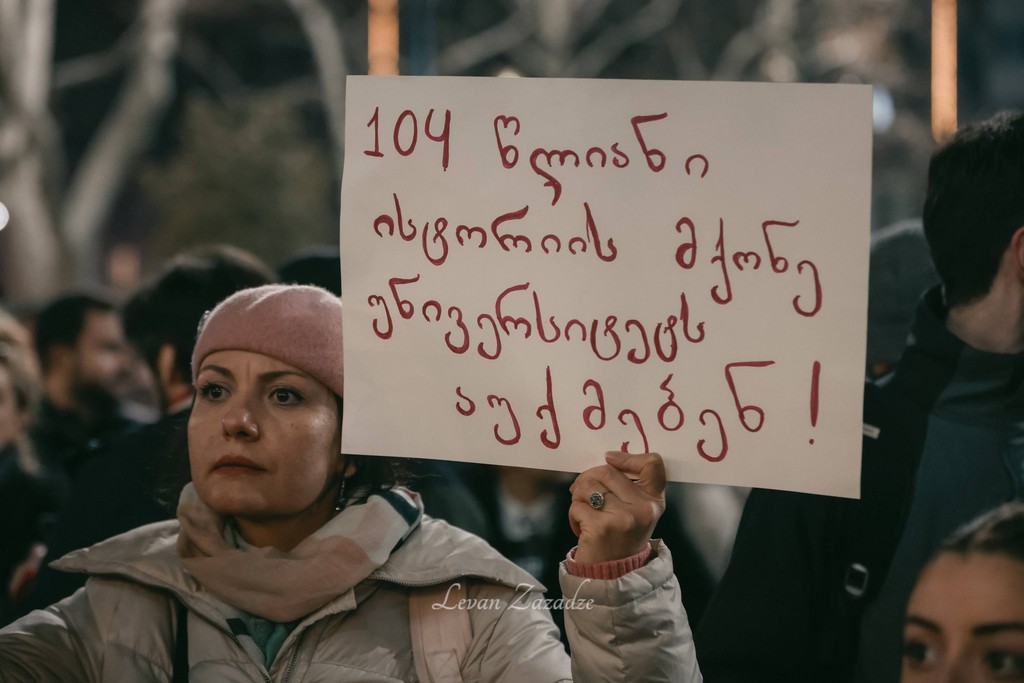 104 წლიანი
ისტორიის მქონე
უნივერსიტეტს
აუქმებენ!
Levan Zazadze